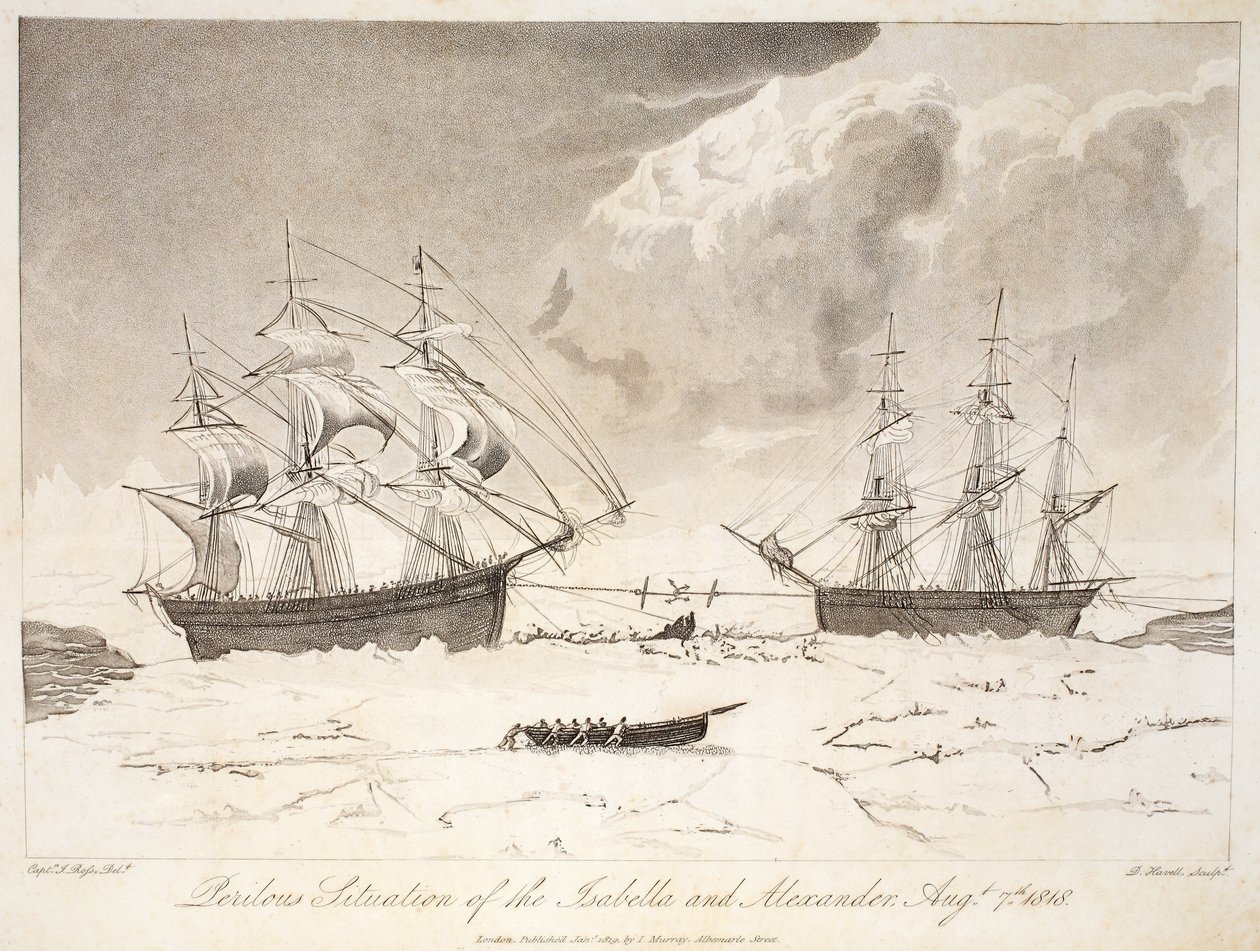 Capt.n J. Ross, Del.t
D. Havell, Sculp.t
Perilous Situation of the Isabella and Alexander, Aug.t 7.th 1818.
London, Published Jan.y 1819, by I. Murray, Albemarle Street.